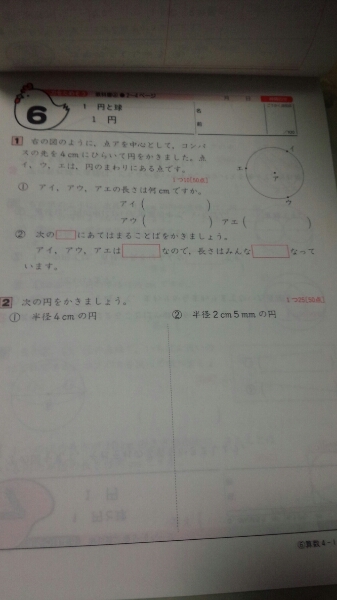 6
1 円と球
1 円
名
前
/100
1 右の図のように、点アを中心として、コンパ
スの先を4cmにひらいて円をかきました。点
イ、ウ、エは、円のまわりにある点です。
イ
エ
ア
ウ
1つ10(50点)
① アイ、アウ、アエの長さは何cmですか。
アイ( )
アウ( ) アエ( )
② 次の□にあてはまることばをかきましょう。
アイ、アウ、アエは□なので、長さはみんな□なって
います。
2 次の円をかきましょう。
① 半径4cmの円
② 半径2cm5mmの円
算数4−1